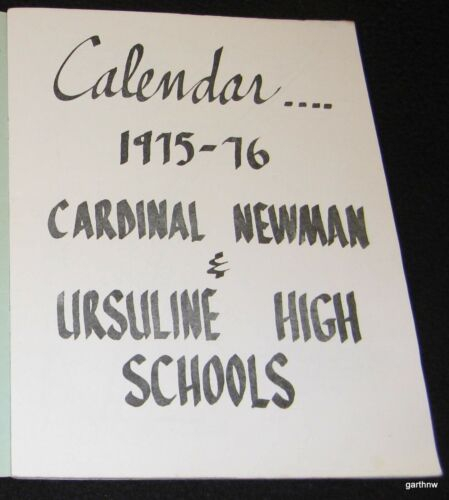 Calendar....
1975-76
CARDINAL NEWMAN
&
URSULINE HIGH
SCHOOLS
garthnw